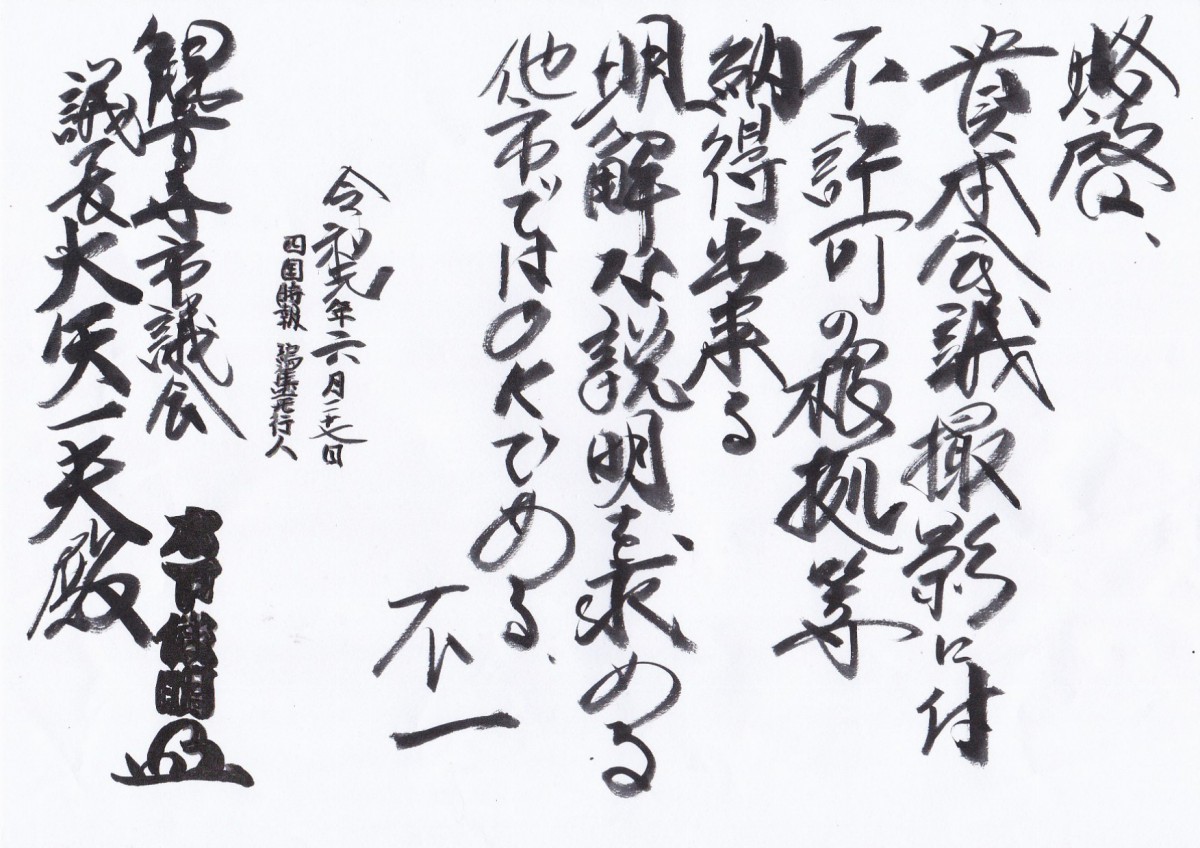 略啓、
貴本会議撮影に付
不許可の根拠等
納得出来る
明解な説明を求める
他市ではOKひめる、
不一
令和元年六月二十七日
四国時報 編集発行人
観音寺市議会
議長大矢一夫殿